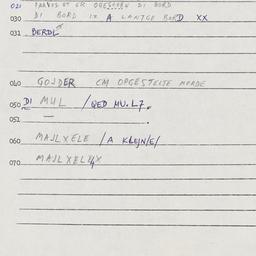 021 BORD
030 DI BORD IX A LANTGE BORD XX
031 DERDL
040 GOJDER EM OPGESTEJTE MORDE
050 DI MUL /QED MU.L7.
051 —
060 MAJLXELE /A KLEJN/E/
070 MAJLXEL